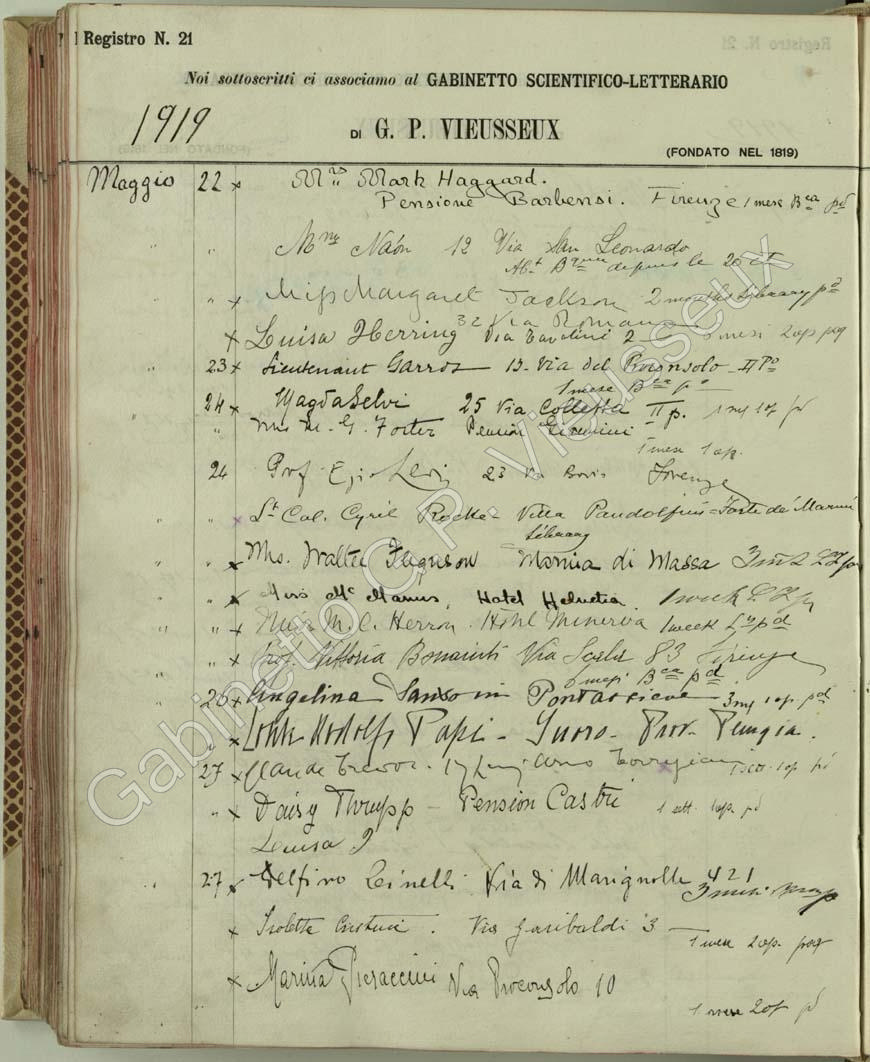 Registro N. 21
Noi sottoscritti ci associamo al GABINETTO SCIENTIFICO-LETTERARIO
1919
DI G. P. VIEUSSEUX
(FONDATO NEL 1819)
Maggio 22 x Mrs Mark Haggard.
Pensione Barbensi. Firenze 1 mese Bca pd
" Mme Naón 12 Via San Leonardo
Abt depuis le 20 ct
" x Miss Margaret Jackson 2 months Library pd
32 Via Romana
x Luisa Herring Via Cavolini 2 mesi 2 op pag
23 x Lieutenant Garros 12 Via del Proconsolo II Po
1 mese Bca po
24 x Magda Selvi 25 Via Colletta II p. 1 op pd
" M. G. Forter Pension
1 mese 1 op.
24 Prof Levi 23 Via Firenze
" x Lt Col. Cyril Rocke Villa Pandolfini Forte dei Marmi
Library
" x Mrs. Walter Ferguson di Massa
" x Miss Mc Manus, Hotel Helvetia. 1 week
" x Miss M. C. Herron. Hôtel Minerva 1 week pd
" x Prof. Vittoria Bonaiuti Via Scala 83 Firenze
mesi Bca pd
26 x Angelina in Pontassieve 3 1 op pd
" x Rodolfo Papi - Prov. Perugia.
27 x Claude Trevor. 17 Lung'Arno Torrigiani 1 op pd
" x Daisy Thrupp - Pension Castri 1 sett. 1 op. pd
Luisa
27 x Delfino Cinelli Via di Marignolle 421
3 mesi
x Isolette Via Garibaldi 3
1 mese 2 op. pag
x Marina Pieraccini Via Proconsolo 10
1 mese 2 op pd
Gabinetto G.P. Vieusseux